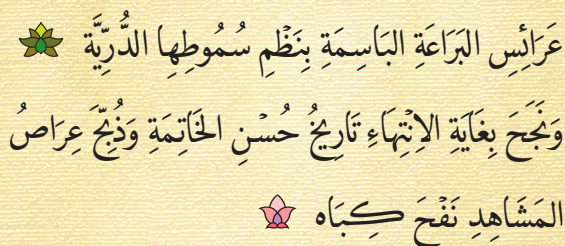 عَرَائِسِ البَرَاعَةِ البَاسِمَةِ بِنَظْمِ سُمُوطِهَا الدُّرِّيَّة
وَنَجَحَ بِغَايَةِ الاِنْتِهَاءِ تَارِيخُ حُسْنِ الخَاتِمَةِ وَذُبِّجَ عِرَاصُ
المَشَاهِدِ نَفْحَ كِبَاه